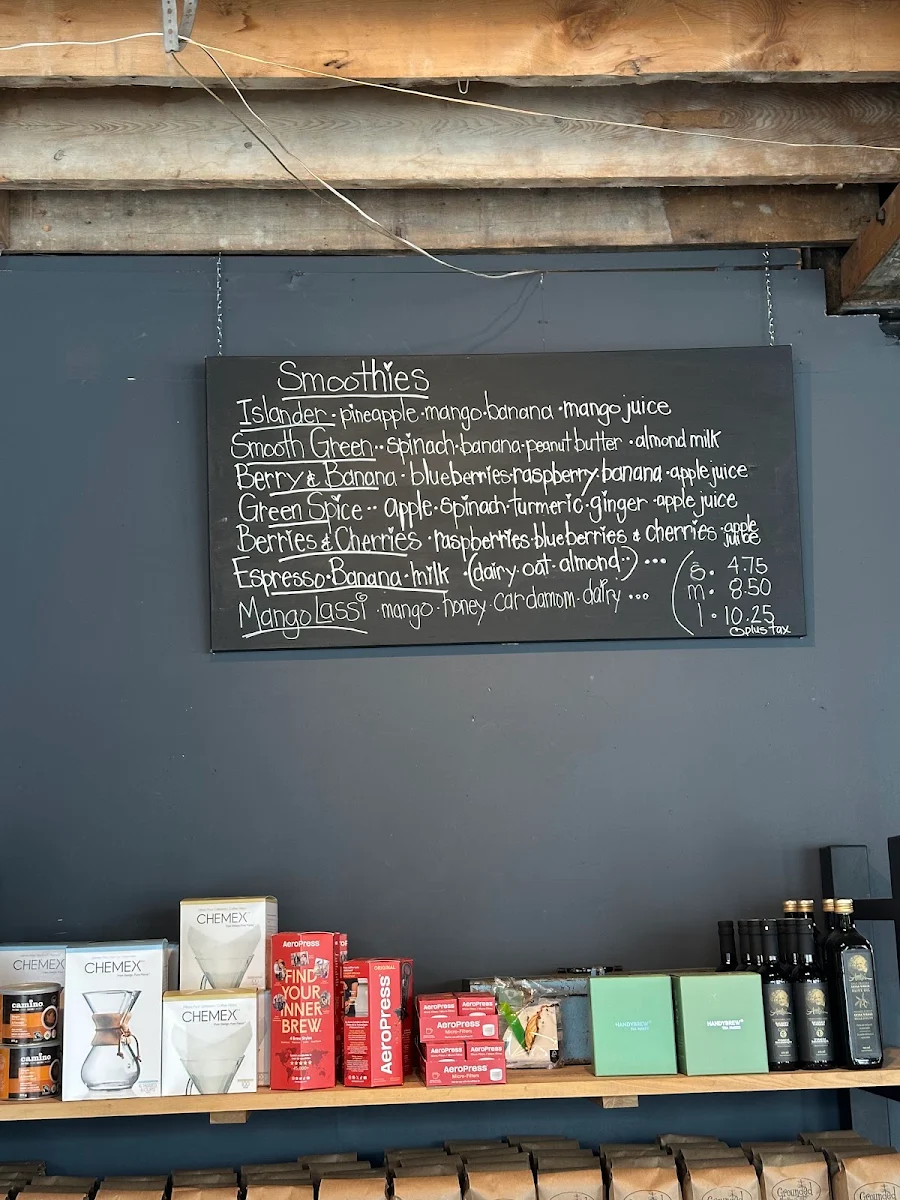 Smoothies
Islander · pineapple · mango · banana · mango juice
Smooth Green ·· spinach · banana · peanut butter · almond milk
Berry & Banana · blueberries · raspberry · banana · apple juice
Green Spice ·· apple · spinach · turmeric · ginger · apple juice
Berries & Cherries · raspberries · blueberries & cherries · apple juice
Espresso · Banana · milk · (dairy · oat · almond) ···
Mango Lassi · mango · honey · cardamom · dairy ···
s · 4.75
m · 8.50
l · 10.25
plus tax
CHEMEX
CHEMEX
CHEMEX
CHEMEX
camino
camino
AeroPress
FIND
YOUR
INNER
BREW
ORIGINAL
AeroPress
AeroPress
AeroPress
AeroPress
Micro-Filters
AeroPress
AeroPress
AeroPress
Micro-Filters
HANDYBREW
HANDYBREW
Grounded
Grounded